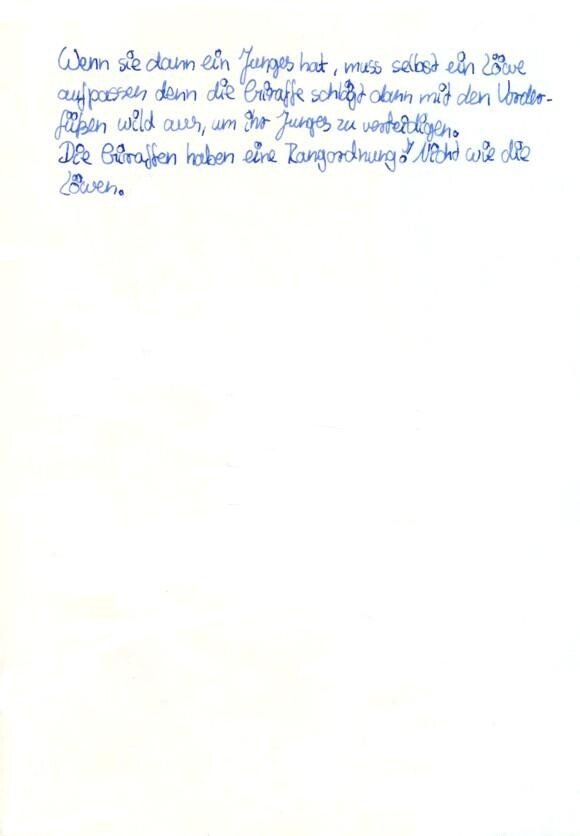 Wenn sie dann ein Junges hat, muss selbst ein Löwe
aufpassen denn die Giraffe schlägt dann mit den Vorder-
füßen wild aus, um ihr Junges zu verteidigen.
Die Giraffen haben eine Rangordnung. Nicht wie die
Löwen.